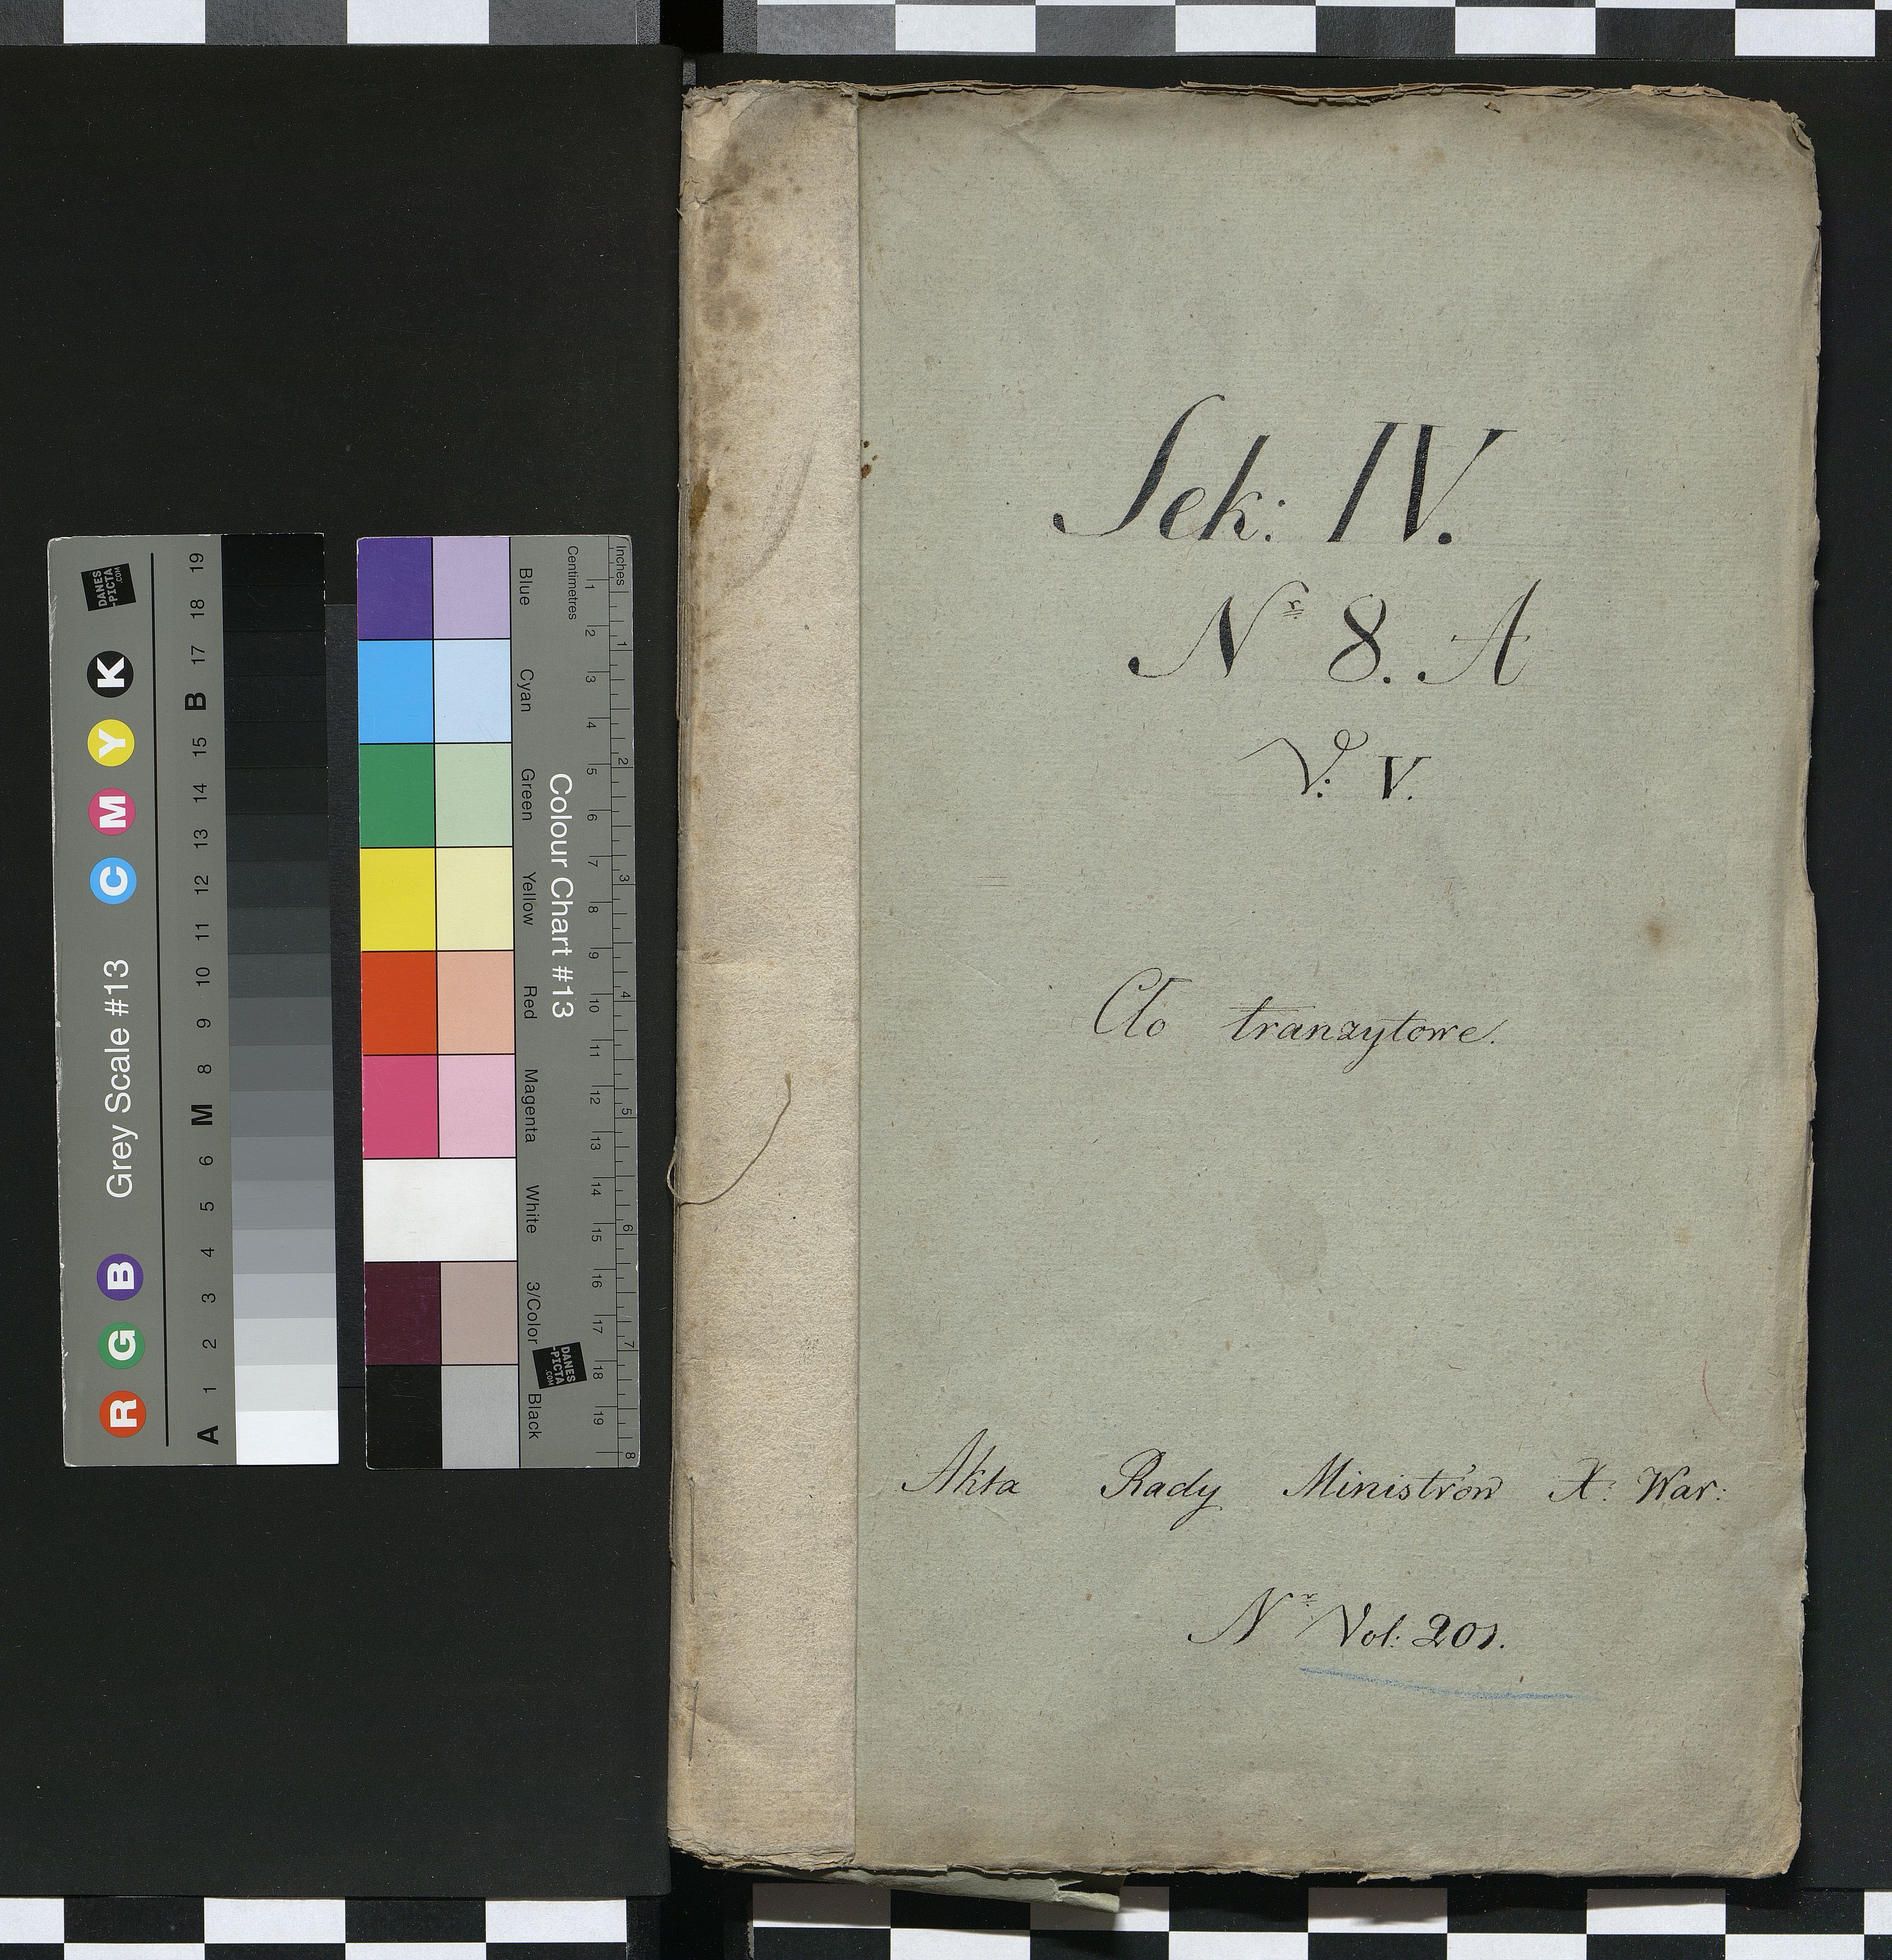 Sek: IV.
Nr 8. A
V: V.
Cło tranzytowe.
Akta Rady Ministrów X: War:
Nr Vol: 201.
Grey Scale #13
DANES
-PICTA
.COM
R G B C M Y K
A 1 2 3 4 5 6 M 8 9 10 11 12 13 14 15 B 17 18 19
Colour Chart #13
Blue Cyan Green Yellow Red Magenta White 3/Color Black
Inches
1 2 3 4 5 6 7 8
Centimetres
1 2 3 4 5 6 7 8 9 10 11 12 13 14 15 16 17 18 19
DANES
-PICTA
.COM